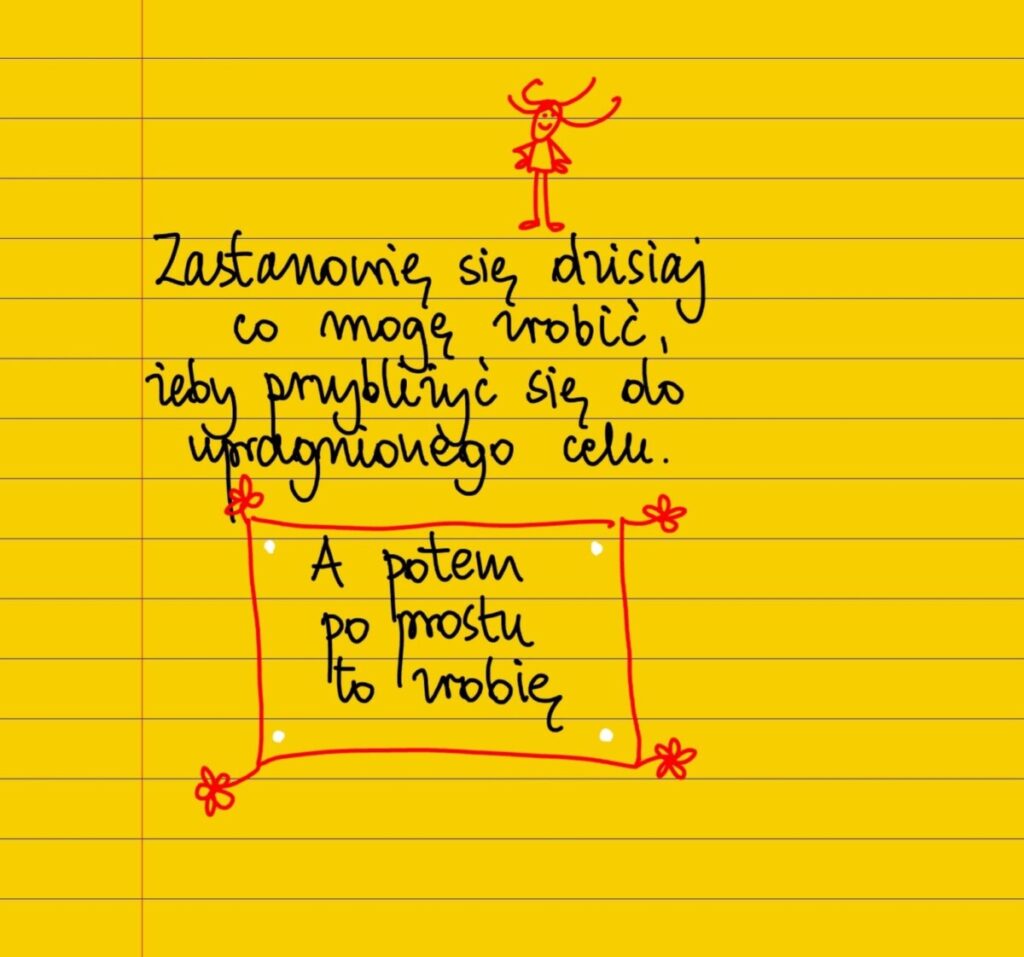 Zastanowię się dzisiaj
co mogę zrobić,
żeby przybliżyć się do
upragnionego celu.
A potem
po prostu
to zrobię